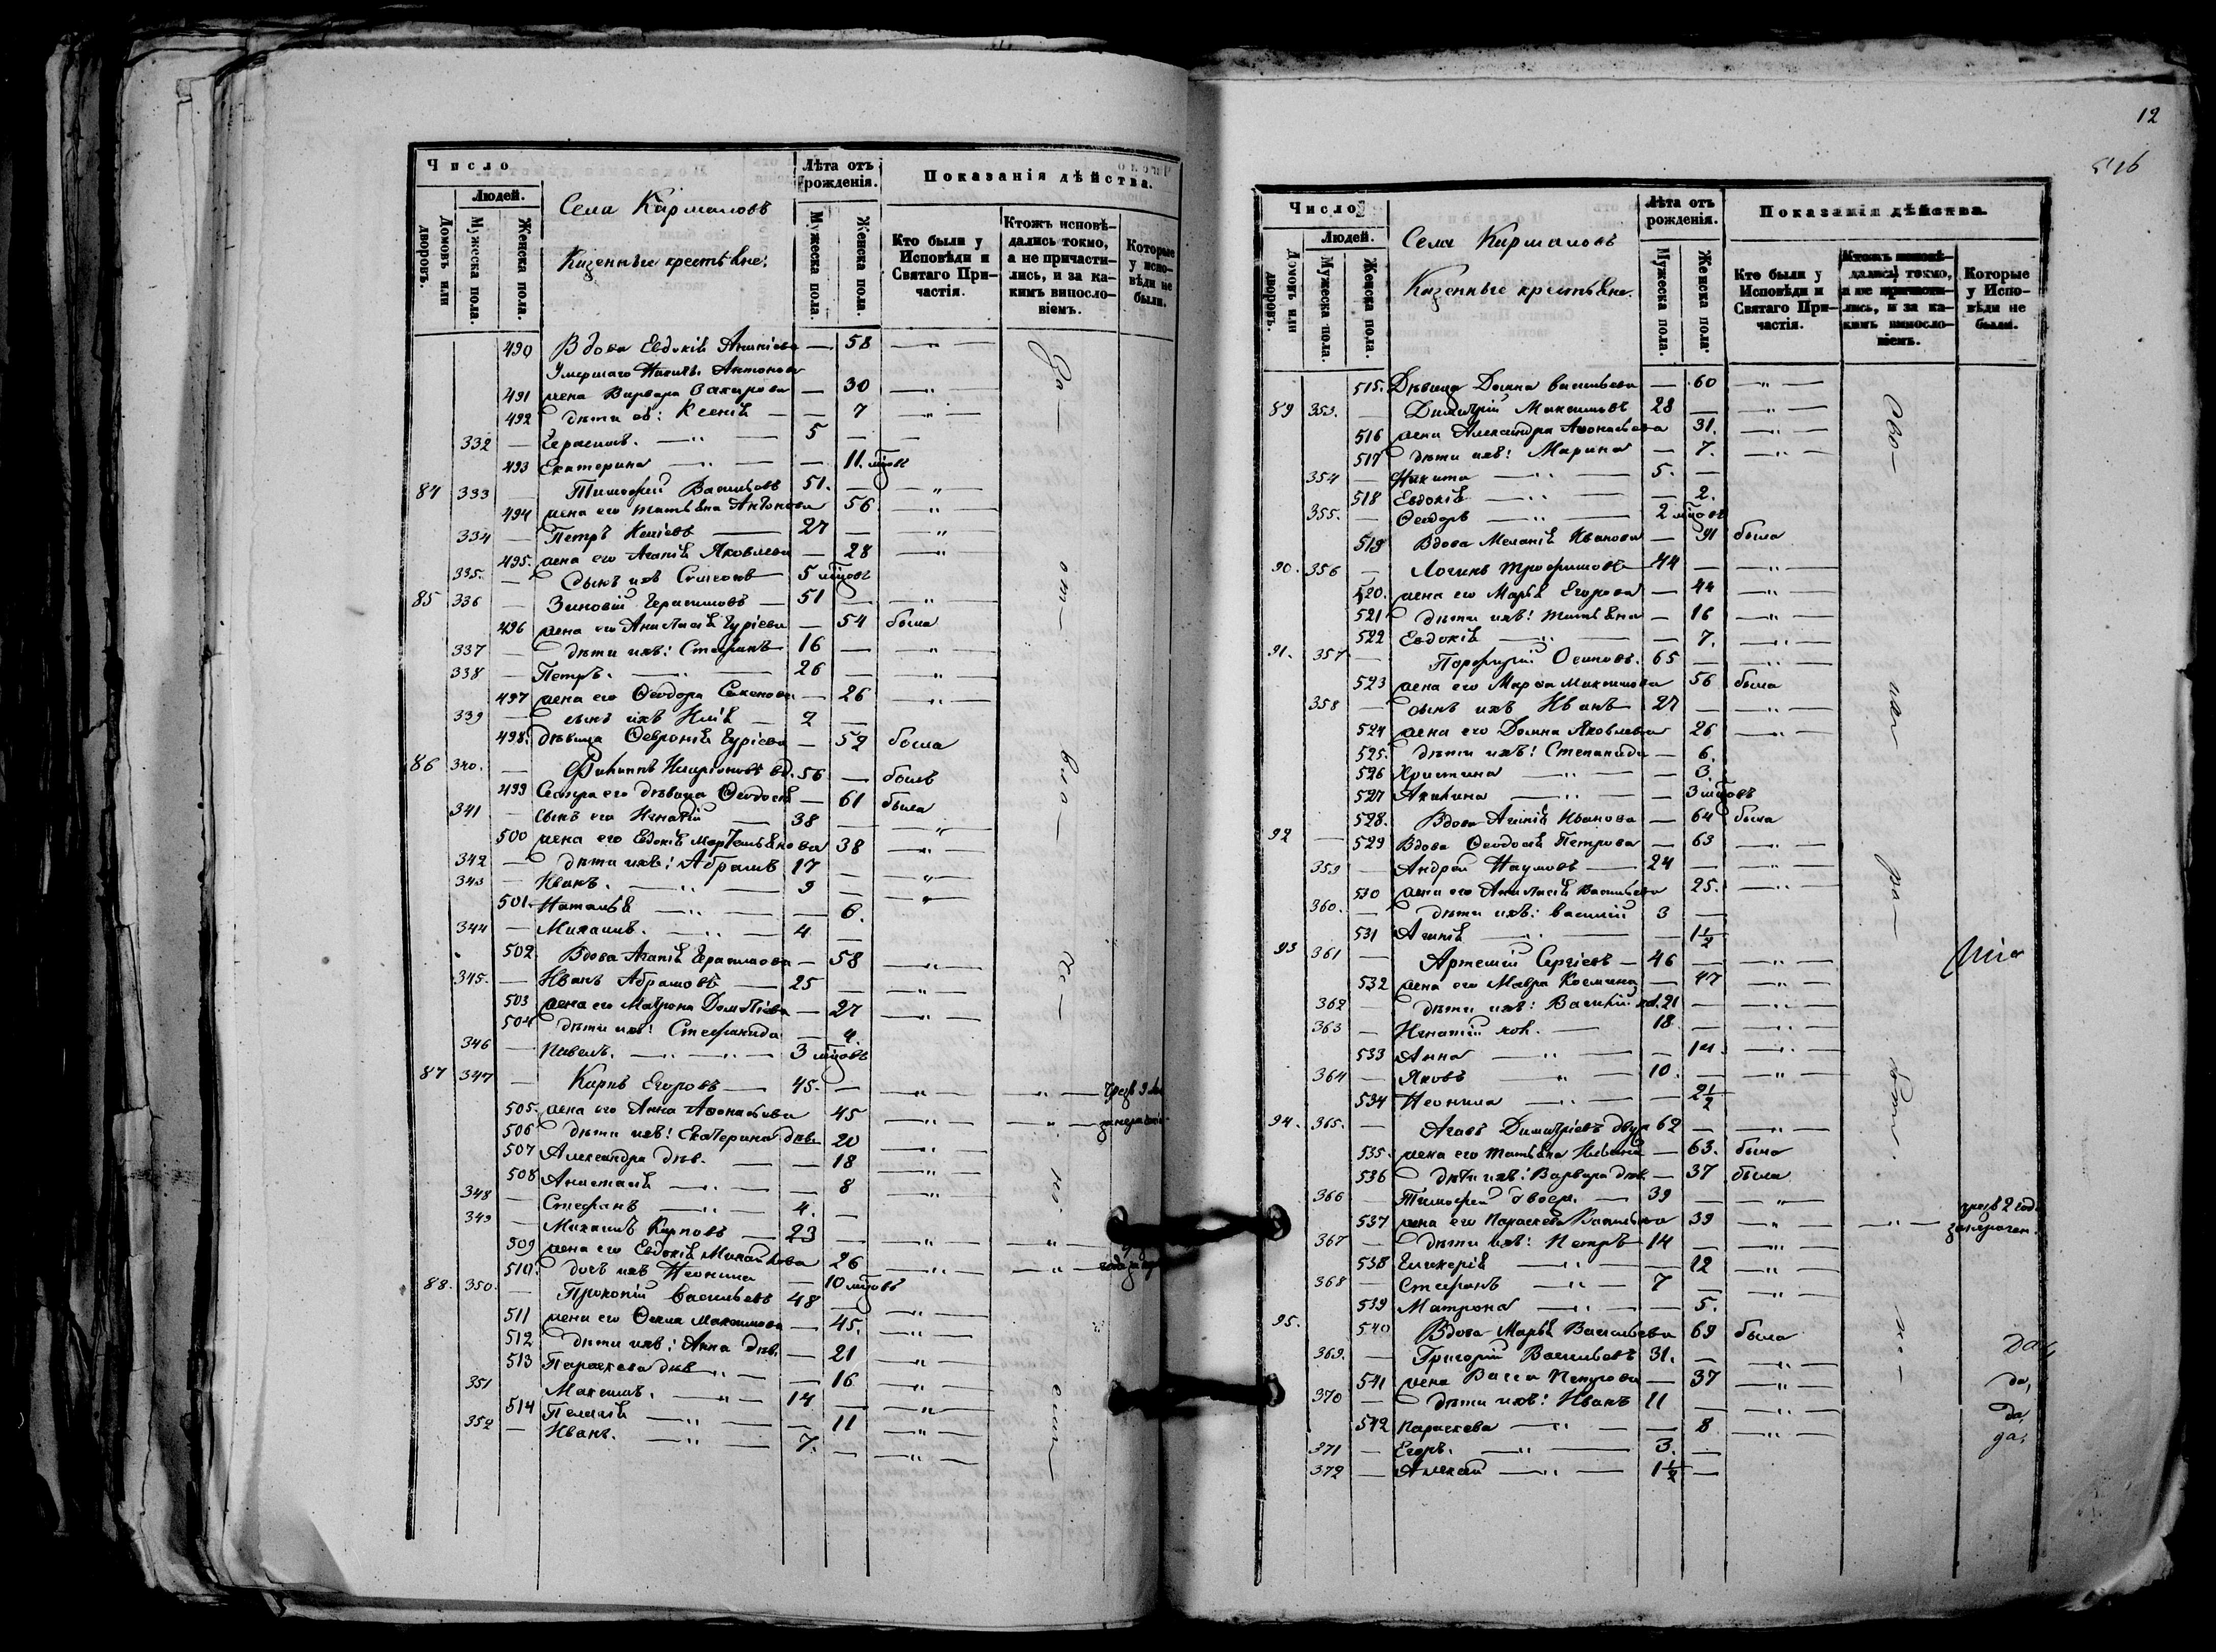 Число
Людей.
Домовъ или дворовъ.
Мужеска пола.
Женска пола.
Села Кармаловъ
Казенные крестьяне.
Лѣта отъ рожденія.
Мужеска пола.
Женска пола.
Показанія дѣйства.
Кто были у Исповѣди и Святаго Причастія.
Ктожъ исповѣдались токмо, а не причастились, и за какимъ винословіемъ.
Которые у исповѣди не были.
490 Вдова Евдокія — 58 — „ —
Умершаго Антонова
491 жена Варвара Захарова — 30 — „ —
492 дѣти ея: Ксенія — — 7 — „ —
332 — Герасимъ. — „ — 5 — —
493 Екатерина — „ — — 11. мцовъ
84 333 — Тимофей Васильевъ 51. — — „
494 жена его Татьяна Антонова 56 — „
334 — Петръ — 27 — — „
495. жена его Агапія Яковлева — 28 — „
335. — Сынъ ихъ — 5 мцовъ
85 336 — Зиновій Герасимовъ — 51 — — „
496 жена его Анастасія Гуріева — 54 была
337 — дѣти ихъ: Стефанъ 16 — — „ —
338 — Петръ. — „ — 26 — — „ —
497 жена его Ѳеодора Семенова — 26 — „ —
339 — сынъ ихъ Илія — 2 —
498. дѣвица Ѳевронія Гуріева — 52 была
86 340. — Филиппъ Иларіоновъ вд. 56 — былъ
499 Сестра его дѣвица Ѳеодосія — 61 была
341 — сынъ его Игнатій — 38 — — „ —
500 жена его Евдокія Мартемьянова 38 — „ —
342 — дѣти ихъ: Абрамъ 17 — — „ —
343 — Иванъ. — „ — 9 — — „ —
501. Наталья — „ — — 6.
344 — Михаилъ. — „ — 4 —
502 Вдова Агапія Герасимова — 58 — „ —
345. — Иванъ Абрамовъ — 25 — — „ —
503 жена его Матрона — 27 — „ —
504 дѣти ихъ: Стефанида — 4.
346 — Павелъ. — „ — 3 мцовъ
87 347 — Карпъ Егоровъ — 45. — — „ — — „ —
505. жена его Анна Аѳонасьева 45 — „ — — „ —
506 дѣти ихъ: Екатерина дѣв. 20 — „ —
507 Александра дѣв. — — 18 — „ —
508 Анастасія — „ — — 8 — „ —
348 — Стефанъ — „ — 4. —
349 — Михаилъ Карповъ — 23 — — „ — „ —
509 жена его Евдокія Михайлова 26 — „ — — „ —
510. дочь ихъ Неонила — 10 мцовъ
88. 350. — Прокопій Васильевъ 48 — — „ —
511 жена его Ѳекла Максимова — 45. — „ —
512 дѣти ихъ: Анна дѣв. — 21 — „ —
513 Параскева дѣв. — „ — — 16 — „ —
351 Максимъ. — „ — 14 — — „ —
514 Пелагія — „ — — 11 — „ —
352 — Иванъ. — „ — 7. — — „ —
12
546
Число
Людей.
Домовъ или дворовъ.
Мужеска пола.
Женска пола.
Села Кармаловъ
Казенные крестьяне.
Лѣта отъ рожденія.
Мужеска пола.
Женска пола.
Показанія дѣйства.
Кто были у Исповѣди и Святаго Причастія.
Ктожъ исповѣдались токмо, а не причастились, и за какимъ винословіемъ.
Которые у Исповѣди не были.
515. Дѣвица Домна Васильева — 60 — „ —
89 353. — Димитрій Максимовъ 28 — — „ —
516 жена Александра Аѳонасьева 31. — „ —
517 дѣти ихъ: Марина — 7. — „ —
354 — Никита — „ — 5. —
518 Евдокія — „ — — 2.
355. — Ѳеодоръ — „ — 2 мцовъ
519 Вдова Меланія Иванова — 91 была
90. 356 — Логинъ Трофимовъ 44 — — „ —
520. жена его Марья Егорова — 44 — „ —
521 дѣти ихъ: Татьяна — 16 — „ —
522 Евдокія — „ — — 7. — „ —
91. 357 — Порфирій Осиповъ. 65 — — „ —
523 жена его Марѳа Максимова 56 была
358 — сынъ ихъ Иванъ 27 — — „ —
524 жена его Домна Яковлева 26 — „ —
525. дѣти ихъ: Степанида — 6.
526 Христина — „ — — 3.
527 Акилина — „ — — 3 мцовъ
528. Вдова Агапія Иванова — 64 была
92 — 529 Вдова Ѳеодосія Петрова — 63 — „ —
359 — Андрей Наумовъ — 24 — — „ —
530 жена его Анастасія Васильева 25. — „ —
360. — дѣти ихъ: Василій 3 —
531 Агапія — „ — — 1½
93 361 — Артемій Сергіевъ — 46 — — „ —
532 жена его Мавра Космина — 47 — „ —
362 — дѣти ихъ: Василій хол. 21 — — „ —
363 — Игнатій хол. — 18 — — „ —
533 Анна — „ — — 14. — „ —
364 — Яковъ — „ — 10. — — „ —
534 Неонила — „ — — 2½
94. 365. — Агавъ Димитріевъ 62 — — „ —
535. жена его Татьяна — 63. была
536 дѣти ихъ: Варвара дѣв. — 37 была
366 — Тимофей — 39 — — „ —
537 жена его Параскева Васильева 39 — „ — — „ — чрезъ 2 года
367 — дѣти ихъ: Петръ 14 — — „ —
538 Гликерія — „ — — 12 — „ —
368 — Стефанъ — „ — 7 — — „ —
539 Матрона — „ — — 5.
95. 540 Вдова Марья Васильева 69 была
369. — Григорій Васильевъ 31. — — „ — да,
541 жена Васса Петрова — 37 — „ — да,
370 — дѣти ихъ: Иванъ 11 — — „ — да,
542 Параскева — „ — — 8 — „ — да,
371 — Егоръ. — „ — 3. —
372 — Алексѣй — „ — 1½ —